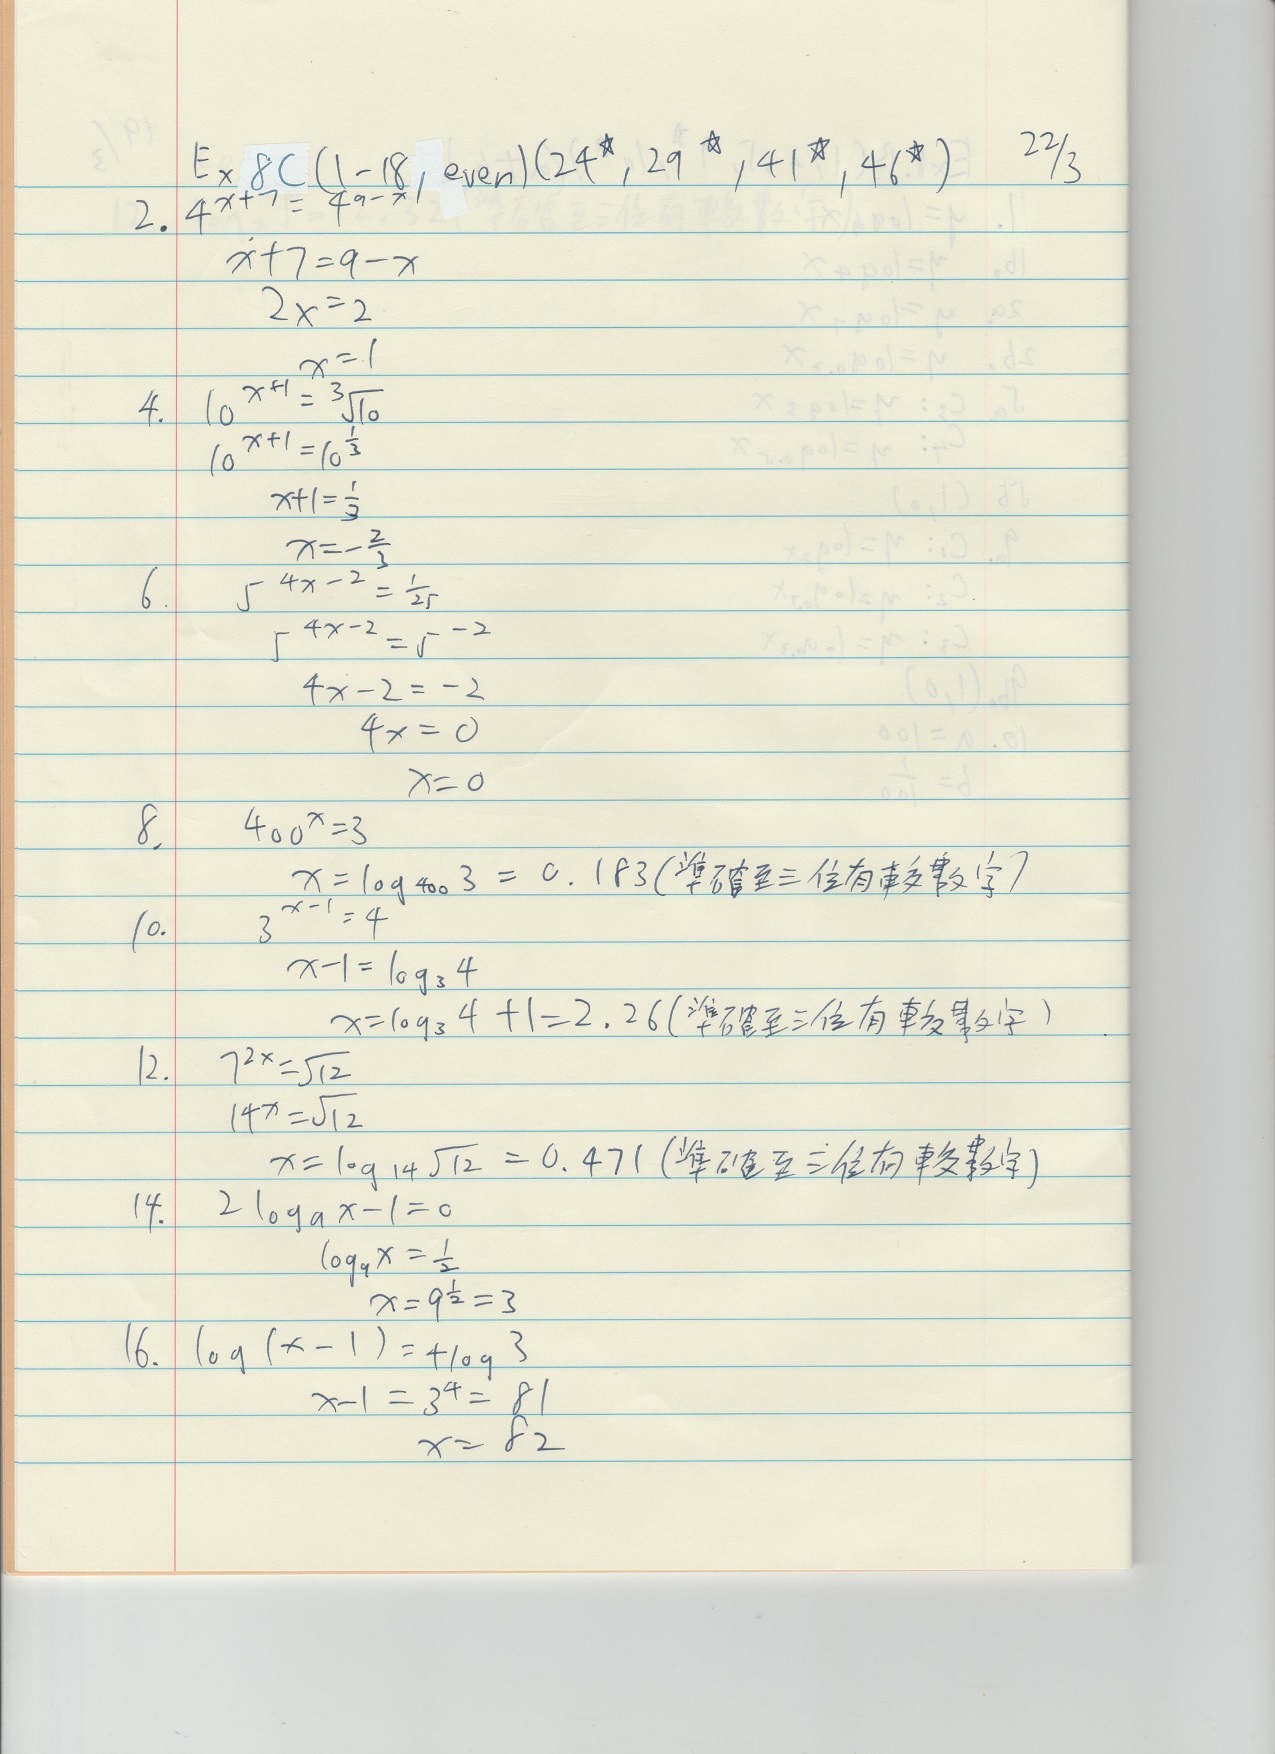 Ex 8C (1-18, even)(24*, 29*, 41*, 46*) 22/3
2. 4^{x+7} = 4^{9-x}
x+7=9-x
2x=2
x=1
4. 10^{x+1} = ³√10
10^{x+1} = 10^{1/3}
x+1=1/3
x=-2/3
6. 5^{4x-2} = 1/25
5^{4x-2} = 5^{-2}
4x-2=-2
4x=0
x=0
8. 400^x=3
x=log₄₀₀ 3 = 0.183(準確至三位有較數字)
10. 3^{x-1} = 4
x-1=log₃ 4
x=log₃ 4 +1=2.26(準確至三位有較數字)
12. 7^{2x}=√12
14^x=√12
x=log₁₄ √12 = 0.471 (準確至三位有較數字)
14. 2 log₉ x-1=0
log₉ x = 1/2
x=9^{1/2}=3
16. log (x-1)=4log 3
x-1 = 3^4 = 81
x= 82